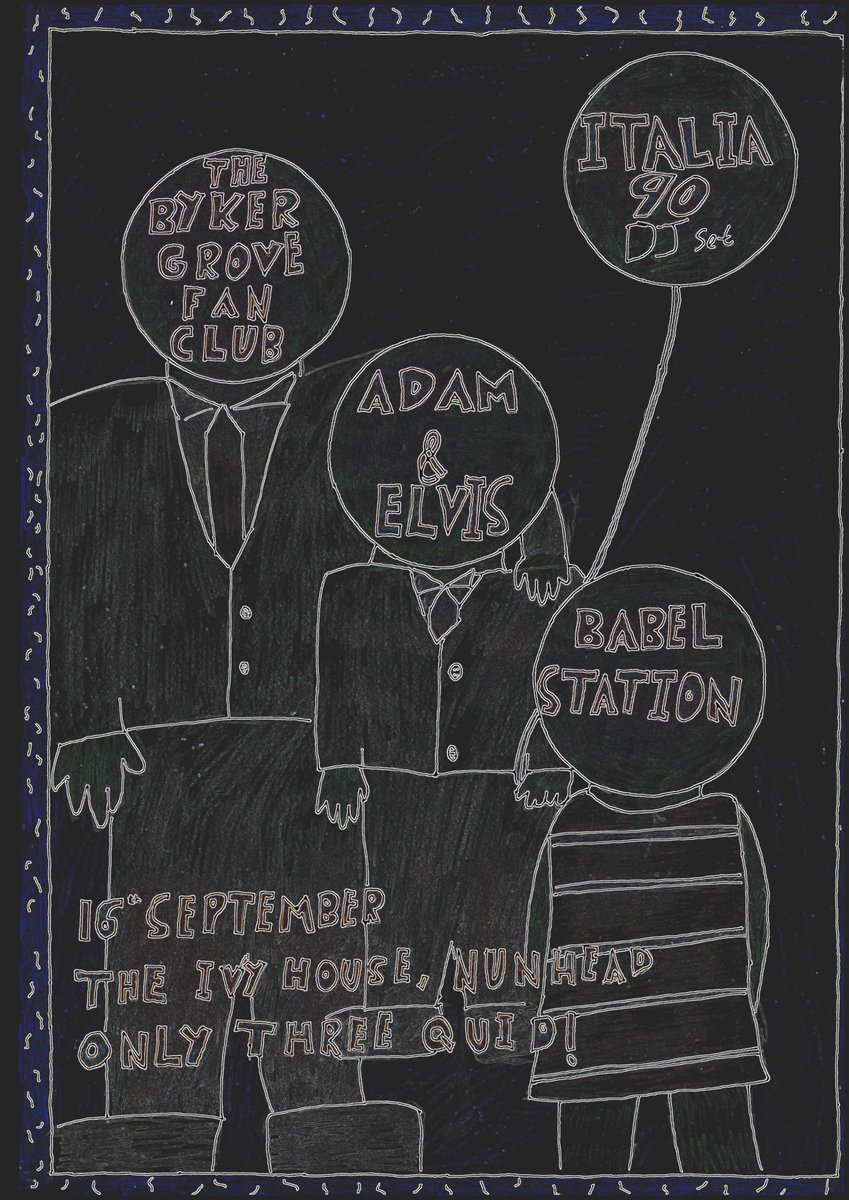 THE
BYKER
GROVE
FAN
CLUB
ITALIA
90
DJ Set
ADAM
&
ELVIS
BABEL
STATION
16th SEPTEMBER
THE IVY HOUSE, NUNHEAD
ONLY THREE QUID!